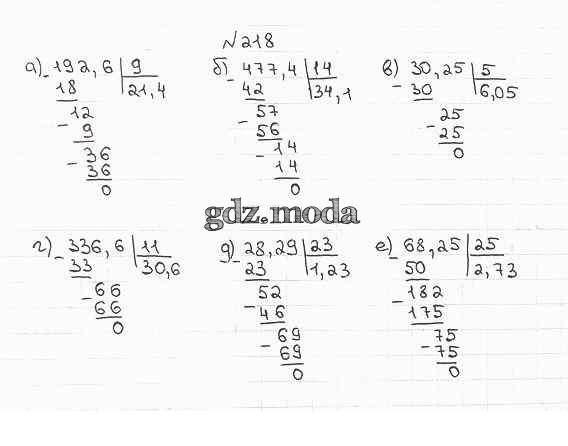 №218
а) 192,6 | 9
- 18 | 21,4
12
- 9
36
- 36
0
б) 477,4 | 14
- 42 | 34,1
57
- 56
14
- 14
0
в) 30,25 | 5
- 30 | 6,05
25
- 25
0
gdz.moda
г) 336,6 | 11
- 33 | 30,6
66
- 66
0
д) 28,29 | 23
- 23 | 1,23
52
- 46
69
- 69
0
е) 68,25 | 25
- 50 | 2,73
182
- 175
75
- 75
0